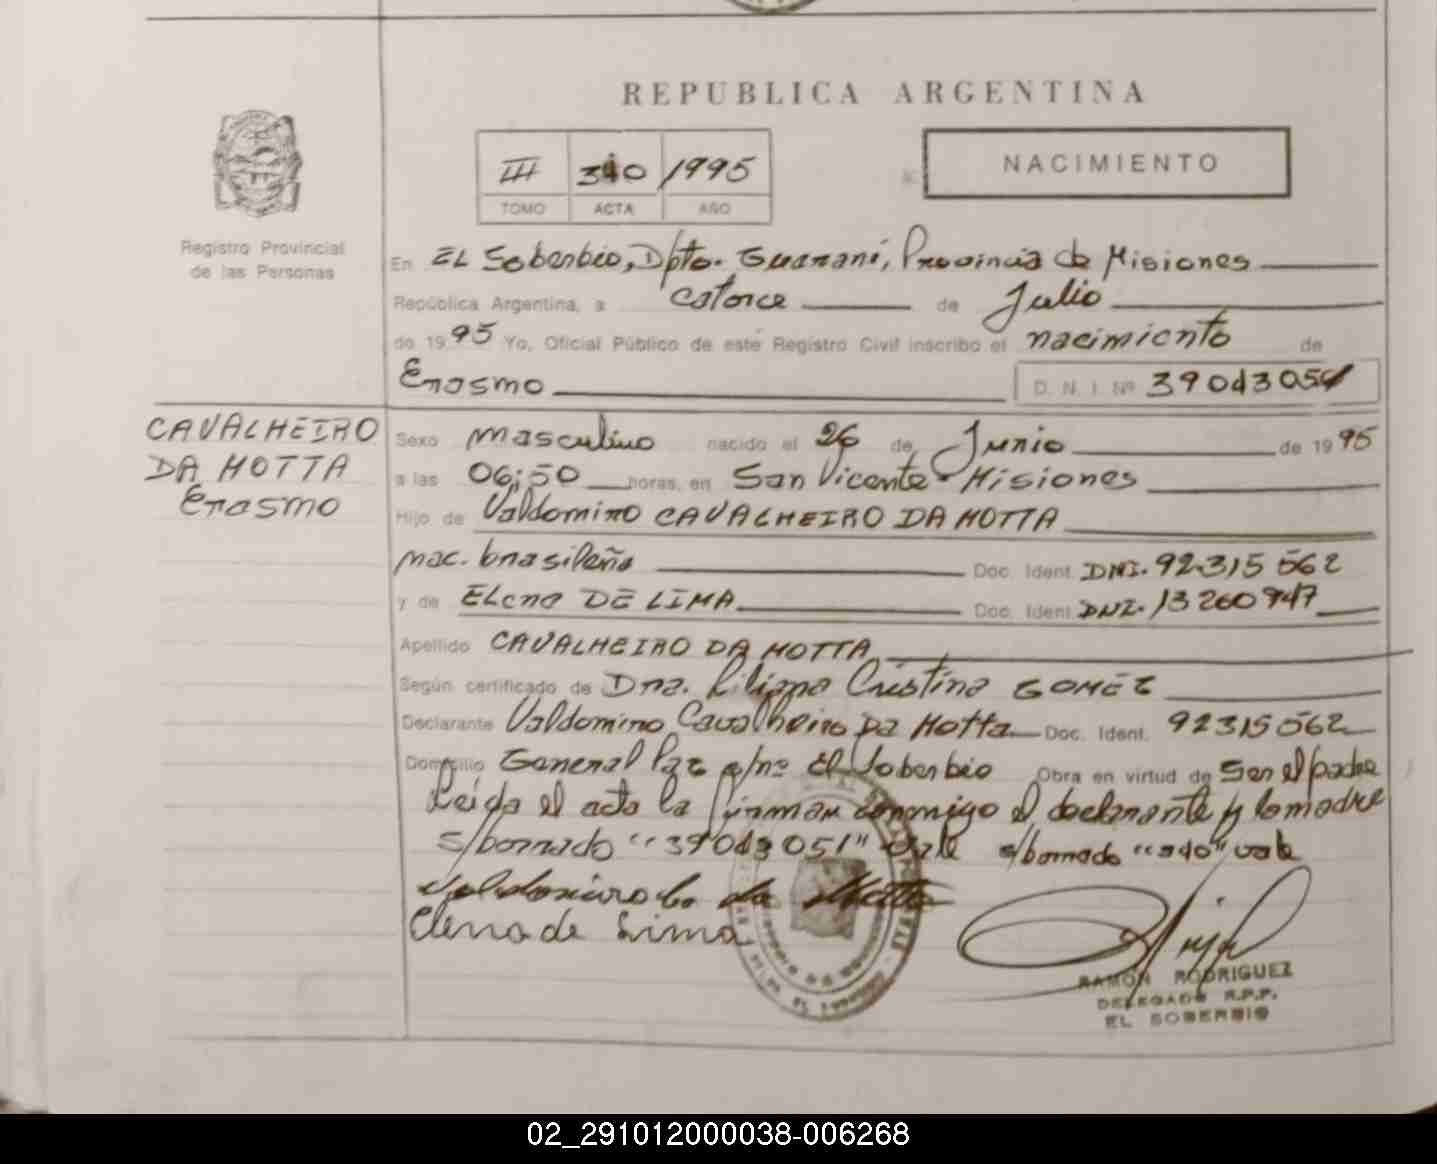 REPUBLICA ARGENTINA
III 340 1995
TOMO ACTA AÑO
NACIMIENTO
Registro Provincial
de las Personas
En EL Soberbio, Dpto. Guaraní, Provincia de Misiones
República Argentina, a catorce de Julio
de 1995 Yo, Oficial Público de este Registro Civil inscribo el nacimiento de
Erasmo D. N. I. Nº 39043051
CAVALHEIRO
DA MOTTA
Erasmo
Sexo masculino nacido el 26 de Junio de 1995
a las 06:50 horas, en San Vicente - Misiones
Hijo de Valdomiro CAVALHEIRO DA MOTTA
nac. brasileña Doc. Ident. DNI. 92315562
y de ELena DE LIMA Doc. Ident. DNI. 13260947
Apellido CAVALHEIRO DA MOTTA
Según certificado de Dra. Liliana Cristina GOMEZ
Declarante Valdomiro Cavalheiro Da Motta Doc. Ident. 92315562
Domicilio General Paz s/nº El Soberbio Obra en virtud de Ser el padre
Leída el acta la firman conmigo el declarante y la madre
s/borrado "39043051" Vale s/borrado "340" vale
Elena de Lima
RAMON RODRIGUEZ
DELEGADO R.P.P.
EL SOBERBIO
02_291012000038-006268